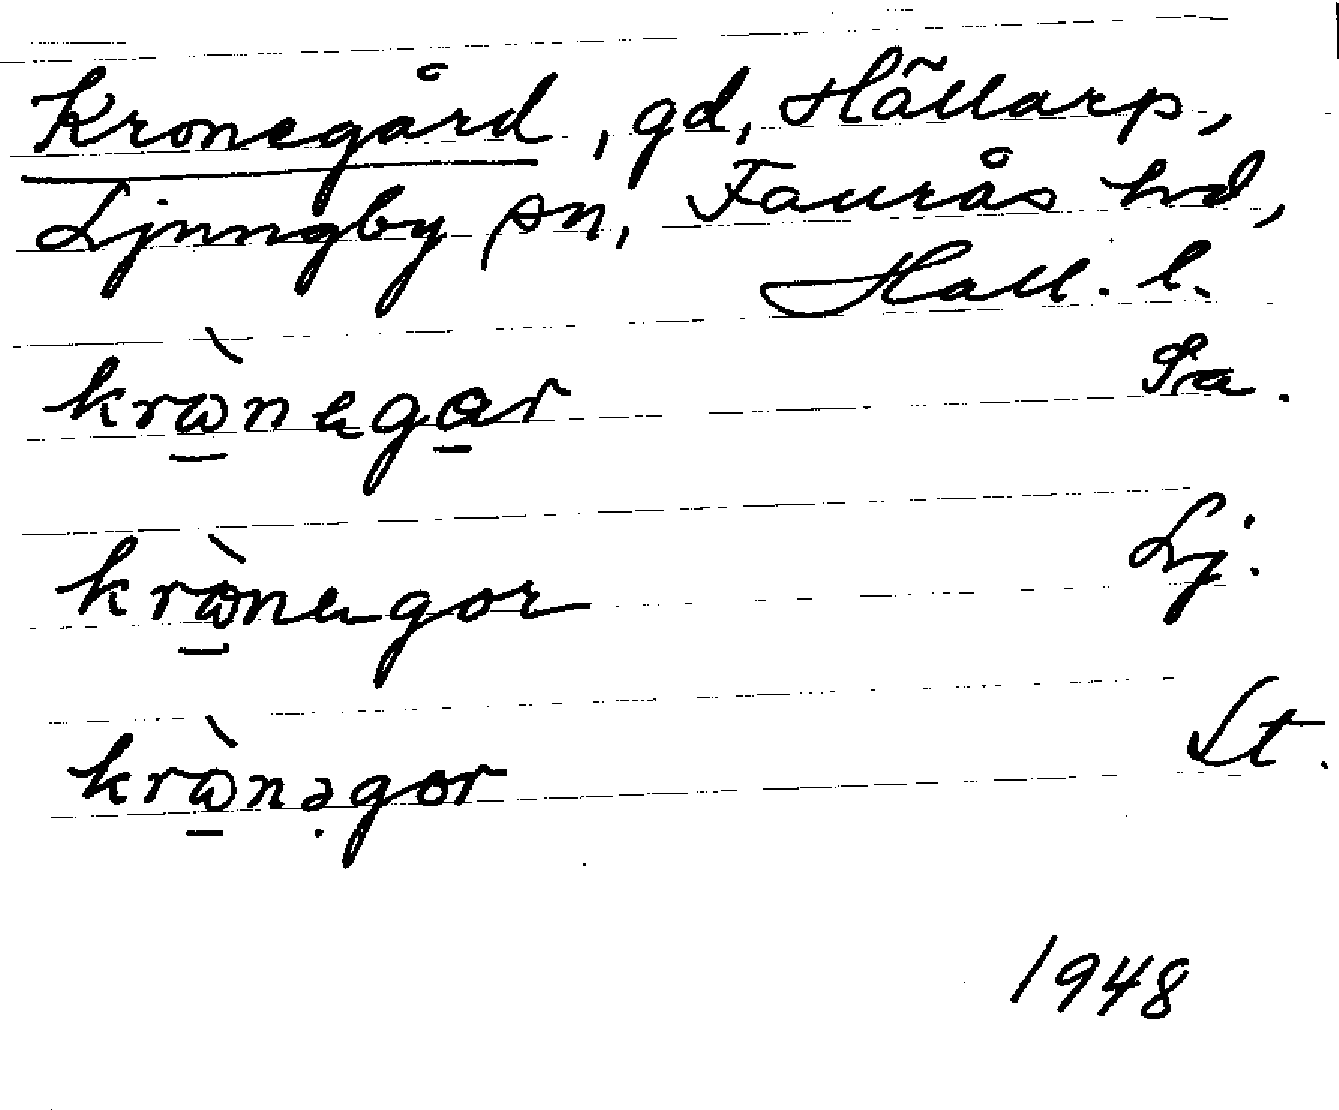 Kronegård, gd, Hällarp,
Ljungby sn, Faurås hd,
Hall. l.
krὼ̲negα̲r Sa.
krὼ̲negor Lj.
krὼ̲nə̣gor St.
1948